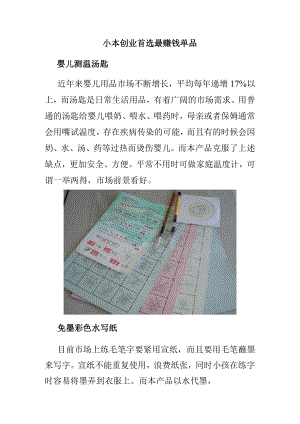 小本创业首选最赚钱单品
婴儿测温汤匙
近年来婴儿用品市场不断增长，平均每年递增 17%以
上，而汤匙是日常生活用品，有着广阔的市场需求。用
普通的汤匙给婴儿喂奶、喂水、喂药时，母亲或者保姆通常
会用嘴试温度，存在疾病传染的可能，而且有的时候会因
奶、水、汤、药等过热而烫伤婴儿。而本产品克服了上述
缺点，更加安全、方便。平常不用时可做家庭温度计，可
谓一举两得，市场前景看好。
免墨彩色水写纸
目前市场上练毛笔字要紧用宣纸，而且要用毛笔蘸墨
来写字。宣纸不能重复使用，浪费纸张，同时小孩在练字
时容易将墨弄到衣服上。而本产品以水代墨，